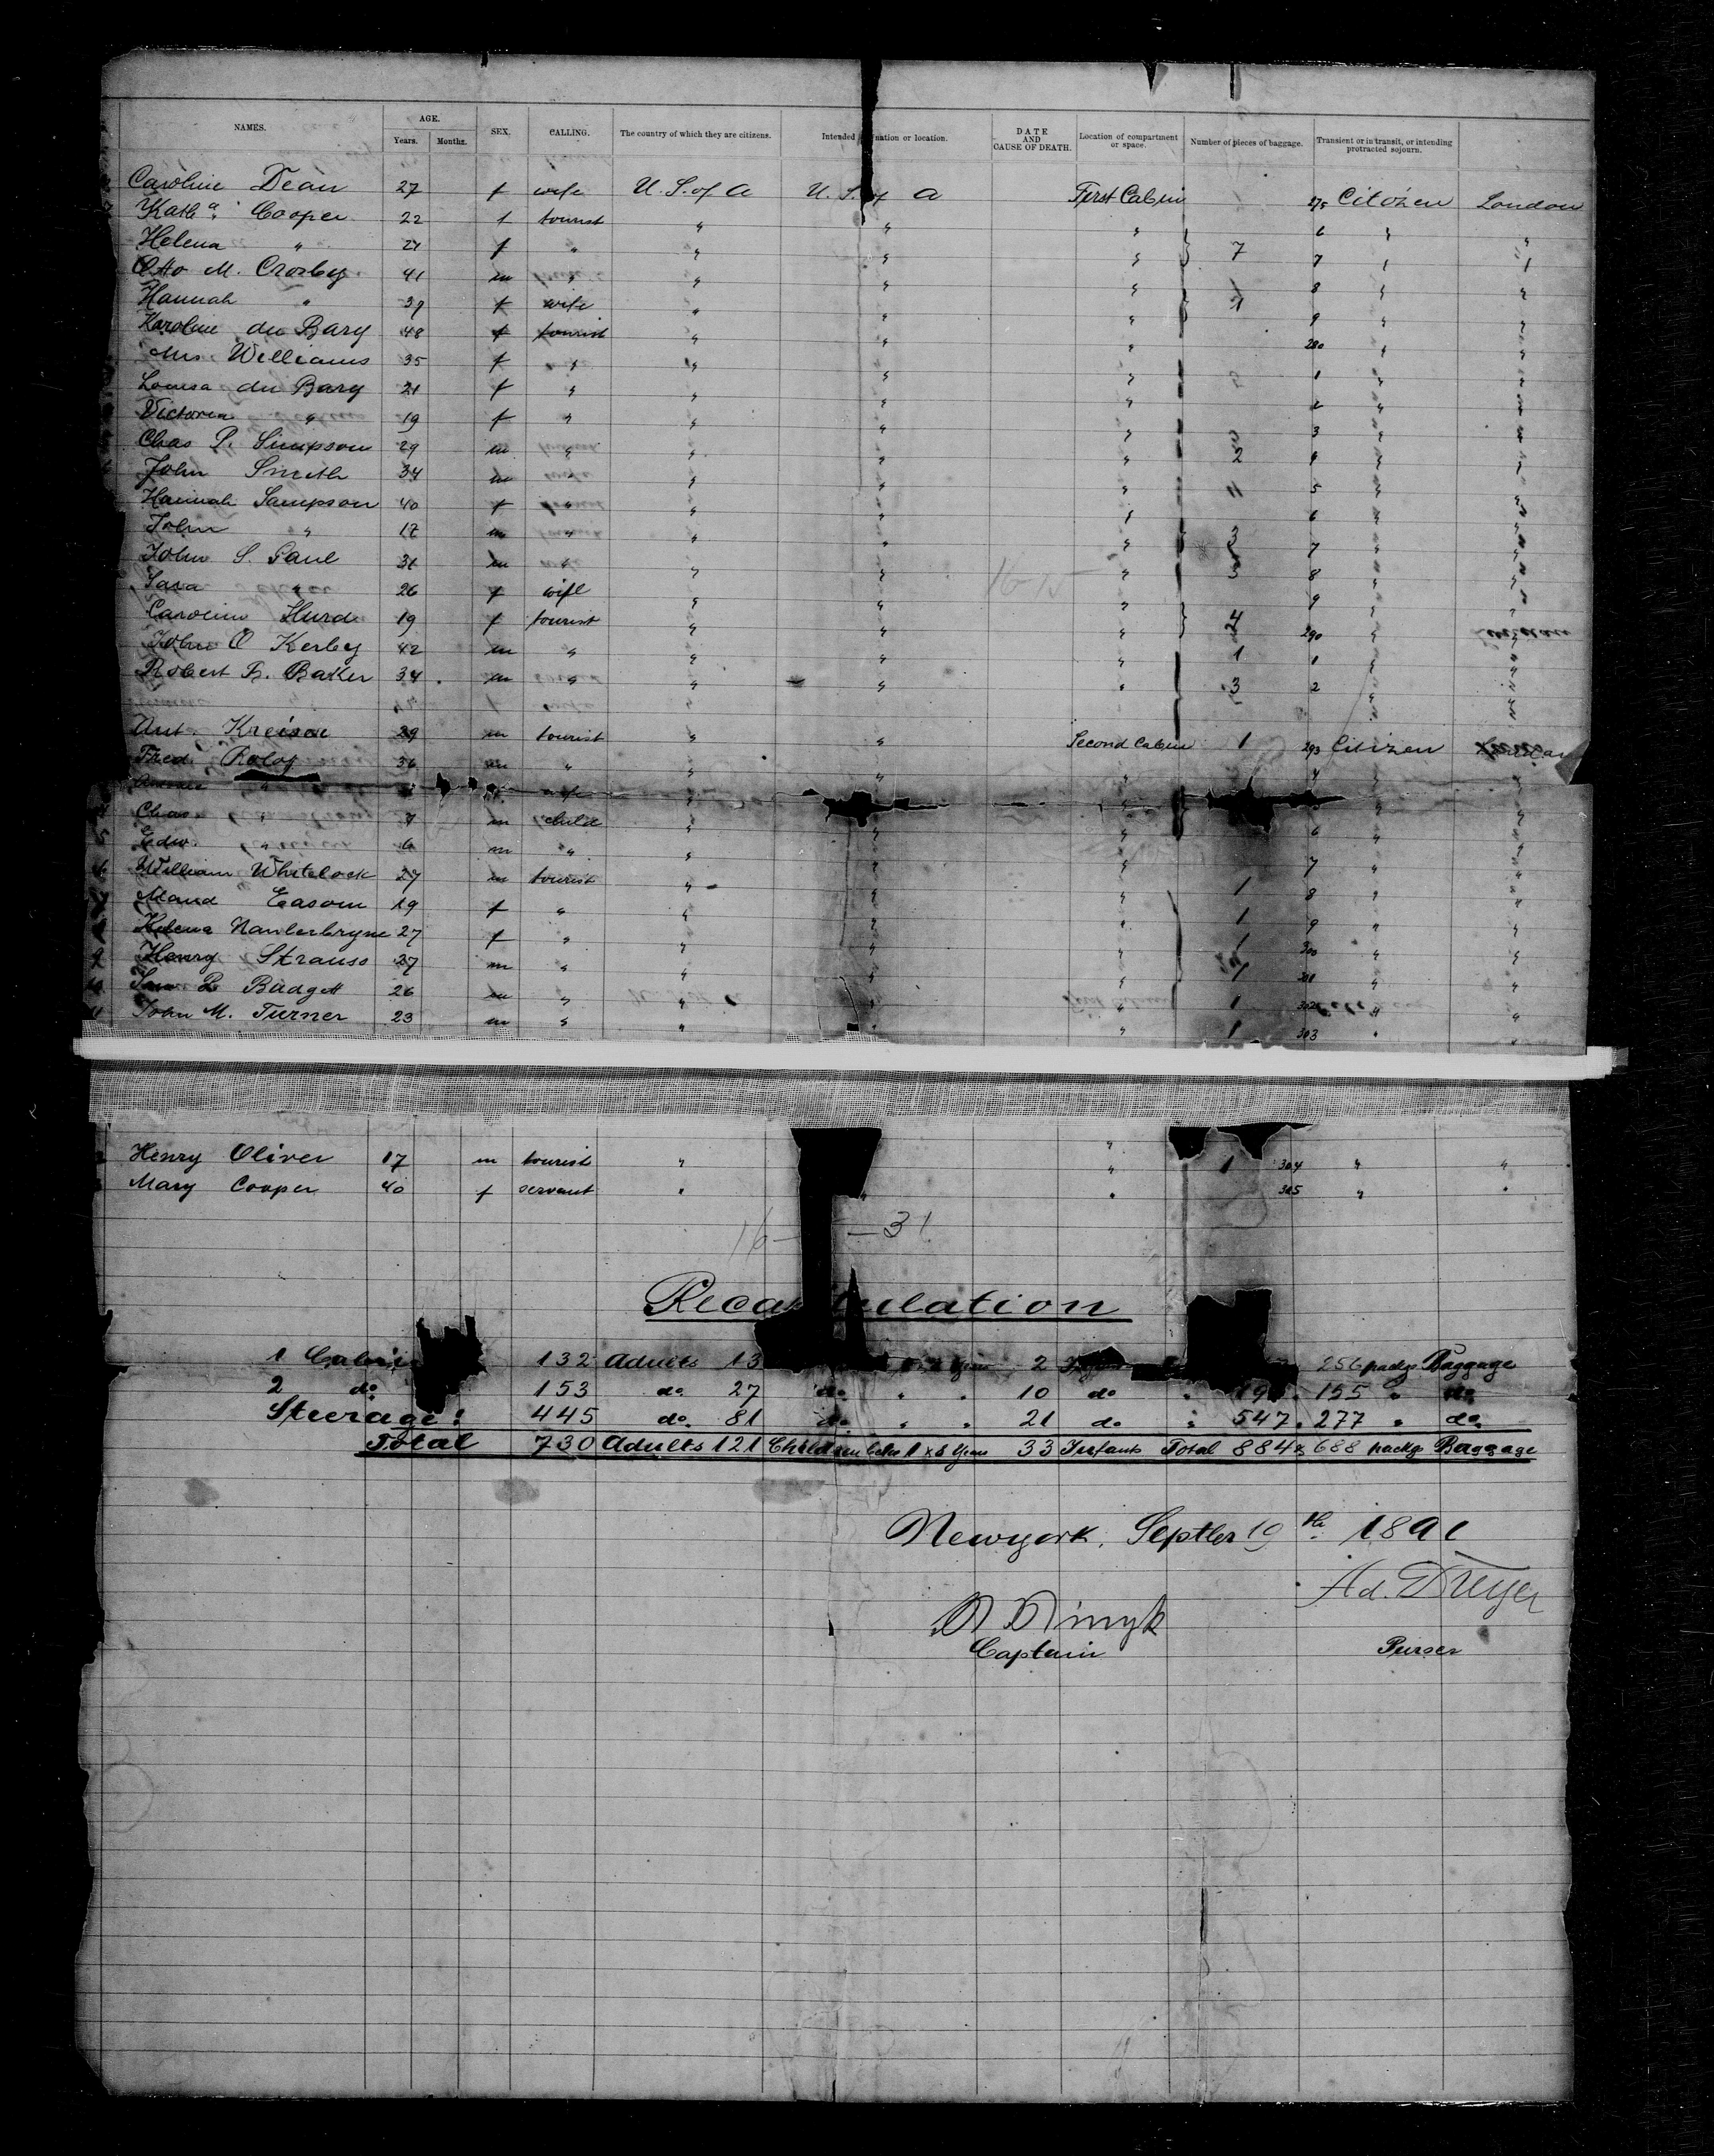 NAMES. AGE. Years. Months. SEX. CALLING. The country of which they are citizens. Intended uation or location. DATE AND CAUSE OF DEATH. Location of compartment or space. Number of pieces of baggage. Transient or in transit, or intending protracted sojourn.
Caroline Dean 27 f wife U. S. of A U. S. of A First Cabin 275 Citizen London
Kath a Cooper 22 f tourist " " " 6 " "
Helena " 21 f " " " " 7 7 " "
Otto M. Crosby 41 m " " " " 8 " "
Hannah " 39 f wife " " " 1 9 " "
Karoline du Bary 48 f tourist " " " 280 " "
Mrs Williams 35 f " " " " 1 " "
Louisa du Bary 21 f " " " " 2 " "
Victoria " 19 f " " " " 3 " "
Chas P. Simpson 29 m " " " " 2 4 " "
John Smith 34 m " " " " 5 " "
Hannah Sampson 40 f " " " " 6 " "
John " 17 m " " " " 3 7 " "
John S. Paul 31 m " " " " 3 8 " "
Sara " 26 f wife " " " 9 " "
Caroline Hurd 19 f tourist " " " 4 290 " "
John O Kerby 42 m " " " " 1 1 " "
Robert B. Baker 34 m " " " " 3 2 " "
Ant. Kreiser 29 m tourist " " Second Cabin 1 293 Citizen London
Fred. Rolof 36 m " " " " 4 " "
" wife " "
Chas " 7 m child " " " 6 " "
Edw. " 6 m " " " " 7 " "
William Whitelock 27 m tourist " " " 1 8 " "
Maud Easom 19 f " " " " 1 9 " "
Helena Vanderbryne 27 f " " " " 1 300 " "
Henry Strauss 27 m " " " " 1 301 " "
B Budgett 26 m " " " " 1 302 " "
John M. Turner 23 m " " " " 1 303 " "
Henry Oliver 17 m tourist " " 1 304 " "
Mary Cooper 40 f servant " " " 305 " "
16 — 31
Reca ulation
1 Cabin 132 Adults 13 2 256 packgs Baggage
2 do 153 do. 27 do. " " 10 do " 19 . 155 " do.
Steerage: 445 do. 81 do. " " 21 do " 547 . 277 " do.
Total 730 Adults 121 Children betw 1 x 8 Years 33 Infants Total 884 & 688 packgs Baggage
Newyork, Septber 19 th 1891
Ad. Dreyer
Captain Purser